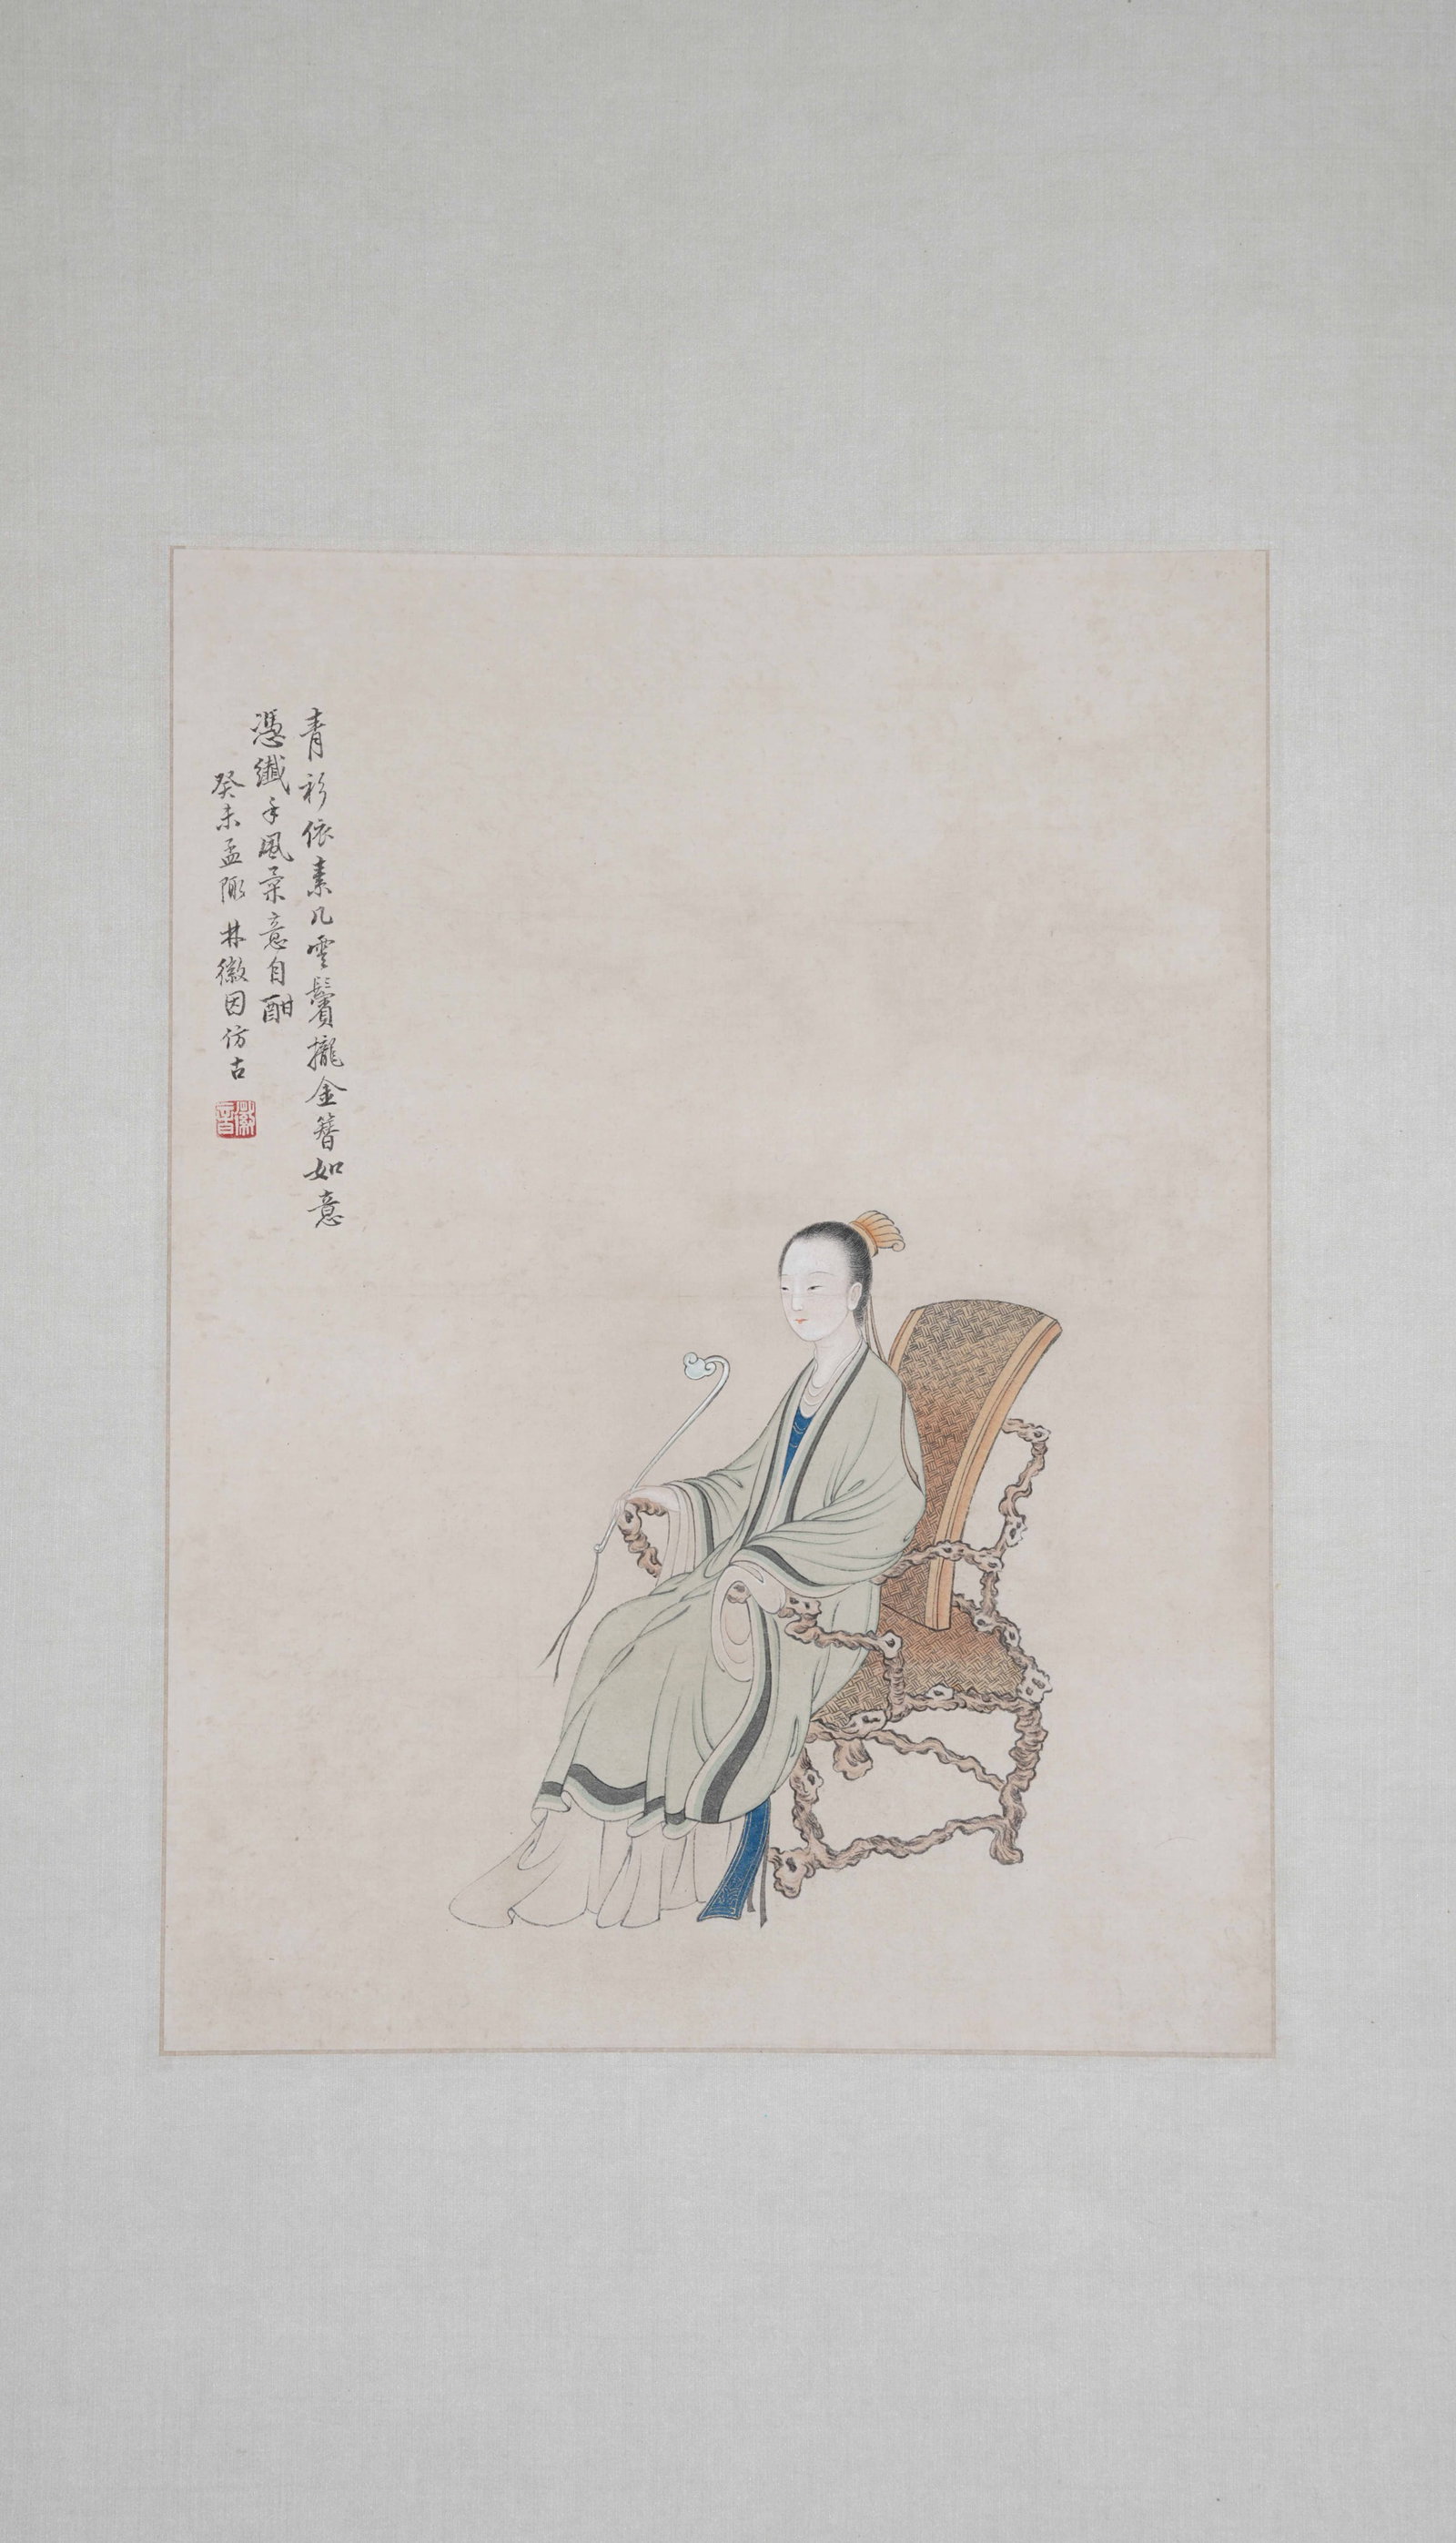 青衫依素几雲鬢攏金簪如意
憑纖手風柔意自酣
癸未孟陬林徽因仿古
徽音